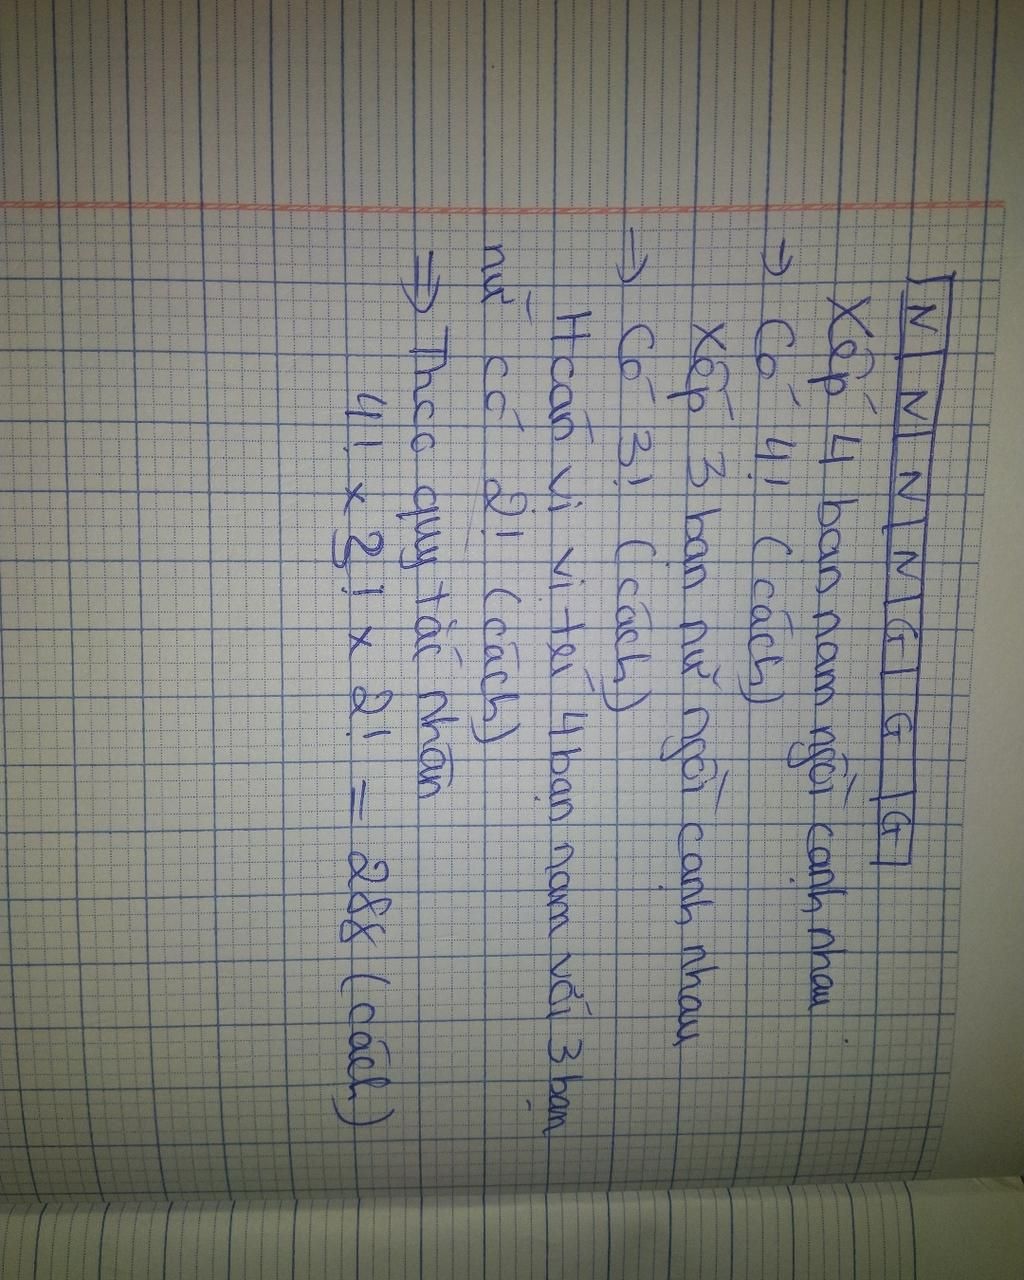 N | N | N | N | G | G | G
Xếp 4 bạn nam ngồi cạnh nhau
→ Có 4! (cách)
Xếp 3 bạn nữ ngồi cạnh nhau
→ Có 3! (cách)
Hoán vị vị trí 4 bạn nam với 3 bạn
nữ có 2! (cách)
⇒ Theo quy tắc nhân
4! × 3! × 2! = 288 (cách)